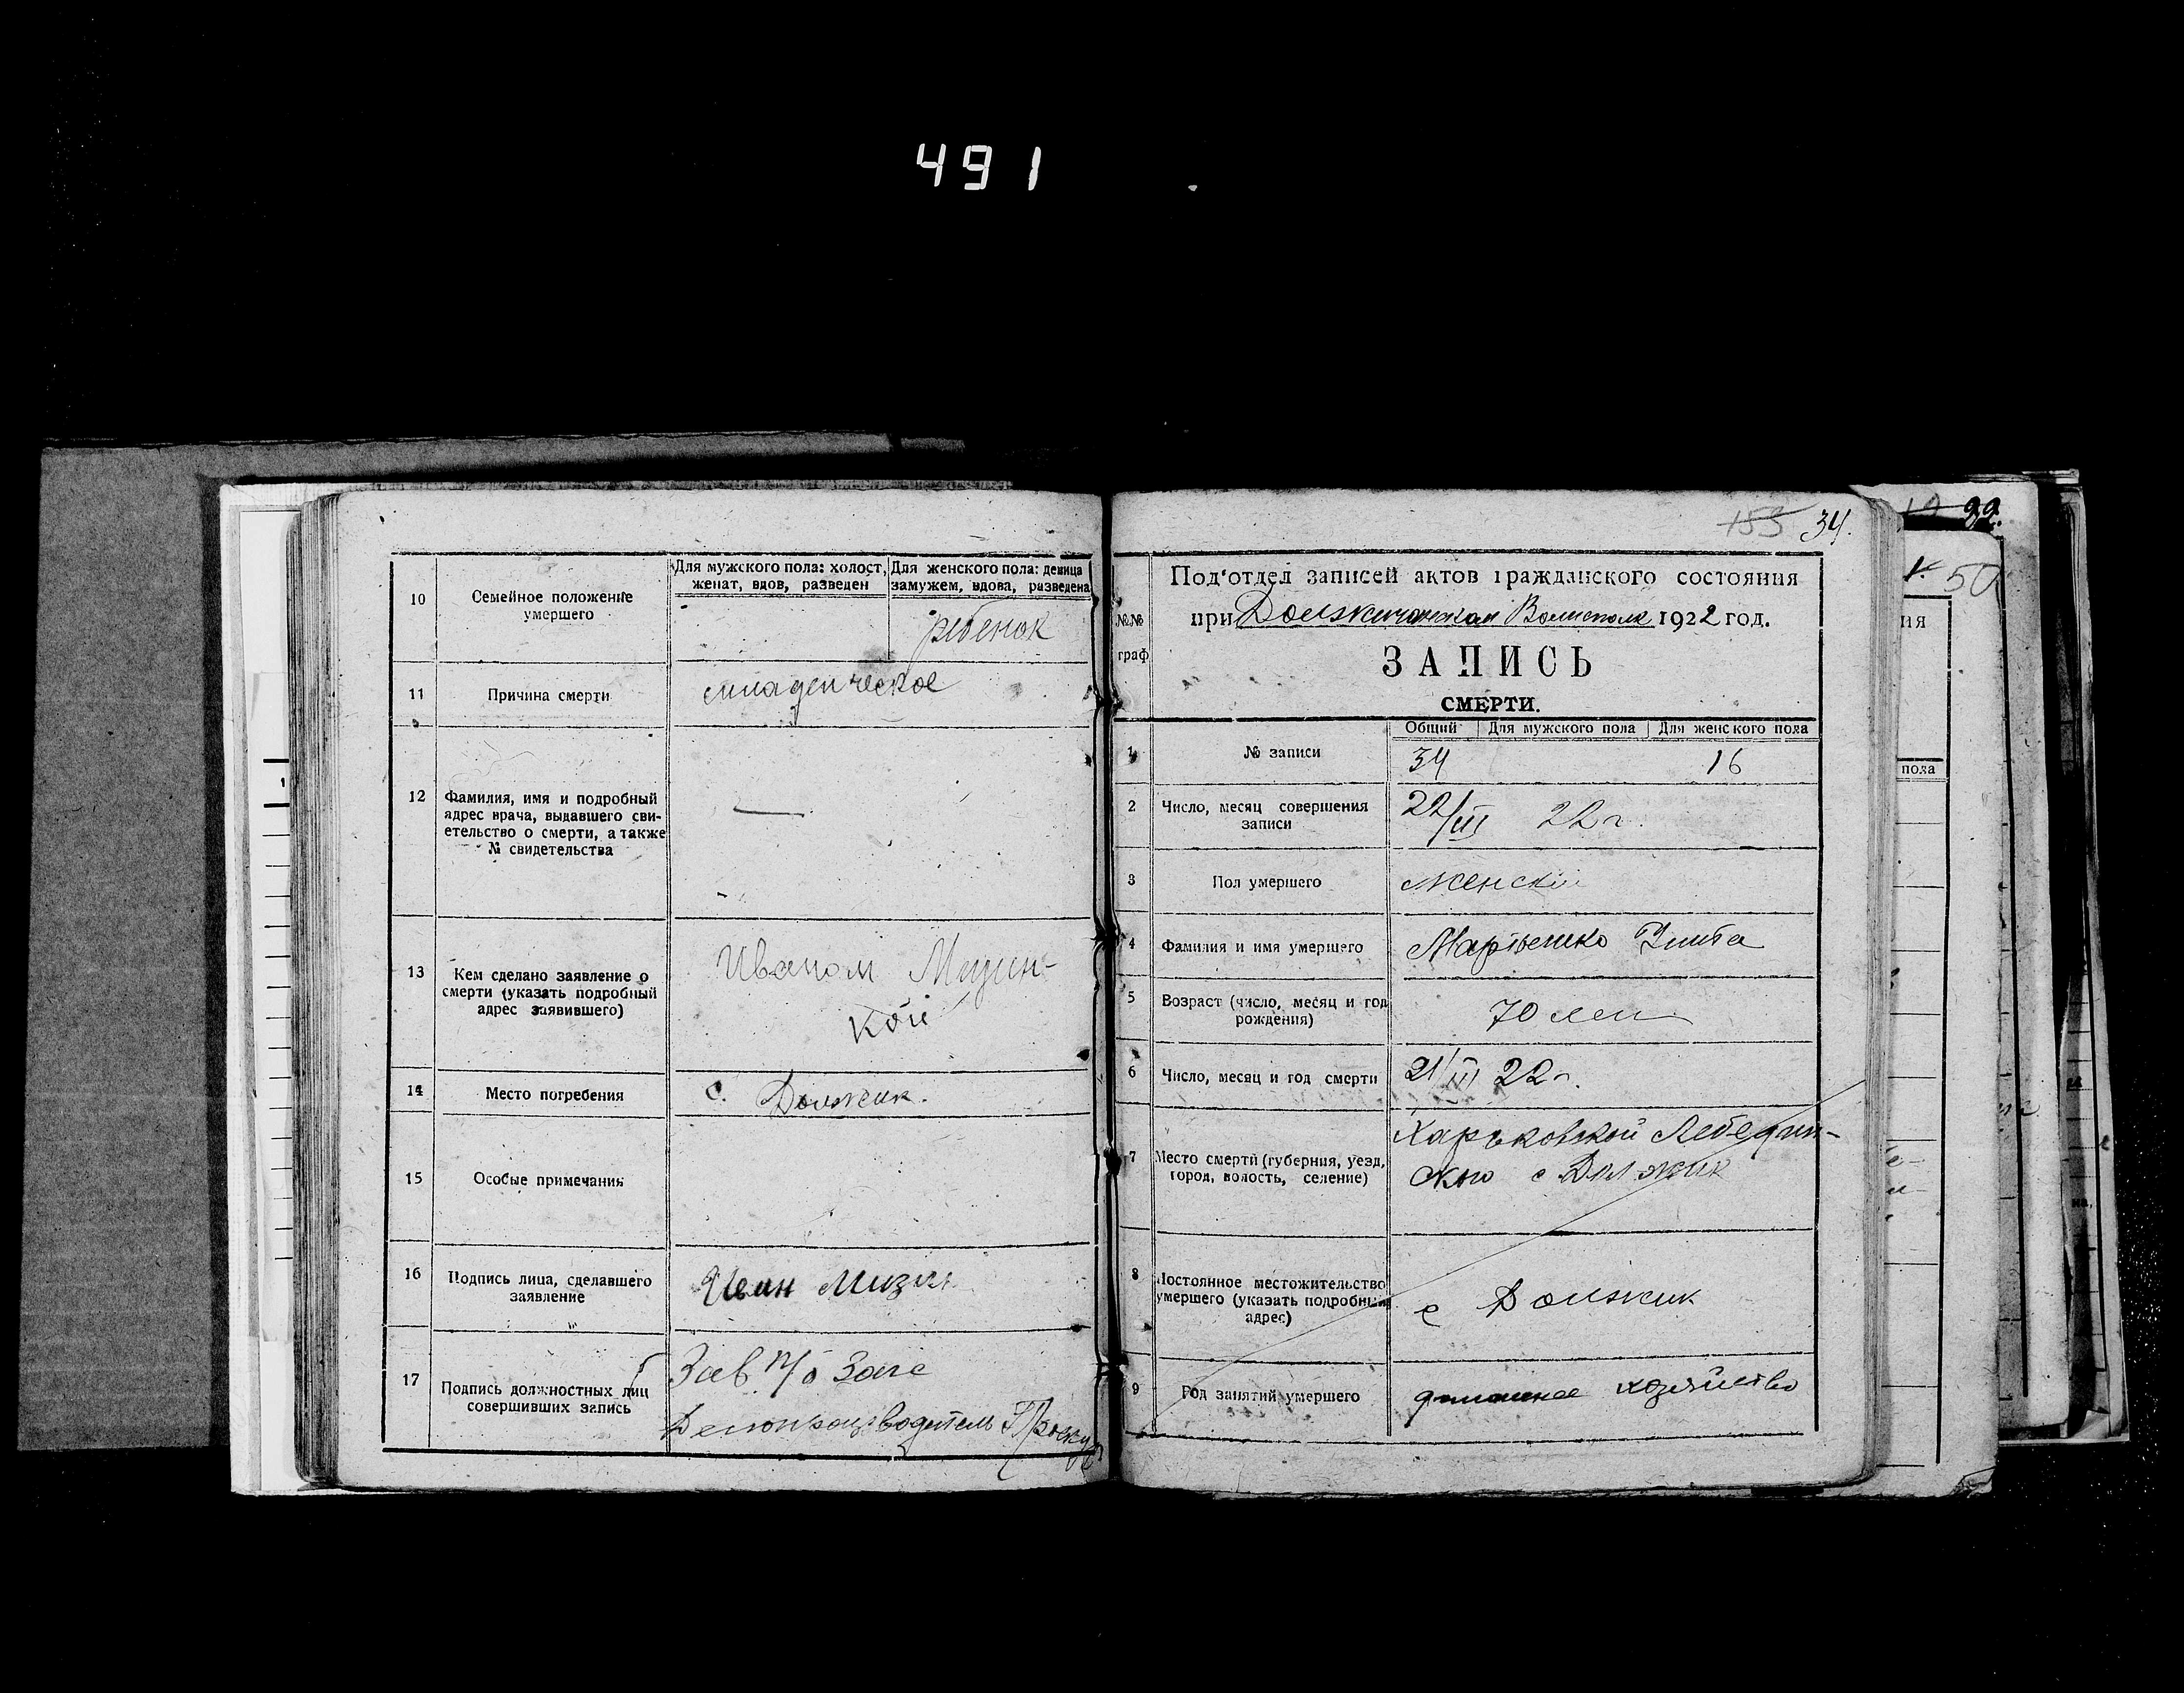 491
10
Семейное положение
умершего
Для мужского пола: холост,
женат, вдов, разведен
Для женского пола: девица
замужем, вдова, разведена
ребенок
11
Причина смерти
младенческое
12
Фамилия, имя и подробный
адрес врача, выдавшего сви-
етельство о смерти, а также
№ свидетельства
—
13
Кем сделано заявление о
смерти (указать подробный
адрес заявившего)
Иваном
кой
14
Место погребения
с. Должик.
15
Особые примечания
16
Подпись лица, сделавшего
заявление
Иван Мизин
17
Подпись должностных лиц
совершивших запись
Зав п/о Загс
Делопроизводитель
155 34.
Под'отдел записей актов гражданского состояния
при 1922 год.
№№
граф
ЗАПИСЬ
СМЕРТИ.
Общий Для мужского пола Для женского пола
1
№ записи
34 16
2
Число, месяц совершения
записи
22/III 22 г.
3
Пол умершего
женский
4
Фамилия и имя умершего
5
Возраст (число, месяц и год
рождения)
70 лет
6
Число, месяц и год смерти
21/III 22 г.
7
Место смерти (губерния, уезд,
город, волость, селение)
Харьковской Лебедин-
ского с Должик
8
Постоянное местожительство
умершего (указать подробный
адрес)
с Должик
9
Род занятий умершего
домашнее хозяйство
50
ия
пола